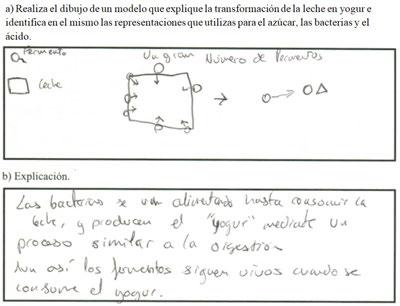 a) Realiza el dibujo de un modelo que explique la transformación de la leche en yogur e
identifica en el mismo las representaciones que utilizas para el azúcar, las bacterias y el
ácido.
Fermento
Leche
Un gran Número de Fermentos
b) Explicación.
Las bacterias se van alimentando hasta consumir la
leche, y producen el "yogur" mediante un
proceso similar a la digestion
Aun así los fermentos siguen vivos cuando se
consume el yogur.